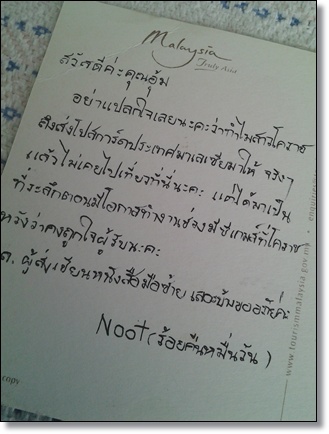 Malaysia
Truly Asia
สวัสดีค่ะคุณอุ้ม
อย่าแปลกใจเลยนะคะว่าทำไมสาวโคราช
ส่งโปสการ์ดประเทศมาเลเซียมาให้ จริงๆ
แล้วไม่เคยไปเที่ยวที่นี่นะคะ แต่ได้มาเป็น
ที่ระลึกตอนมีโอกาสทำงานช่วงมีซีเกมส์ที่โคราช
หวังว่าคงถูกใจผู้รับนะคะ
ล. ผู้ส่งเขียนหนังสือมือซ้าย เลอะบ้างขออภัยค่ะ
Noot (ร้อยคืนหมื่นวัน)
www.tourismmalaysia.gov.my
copy